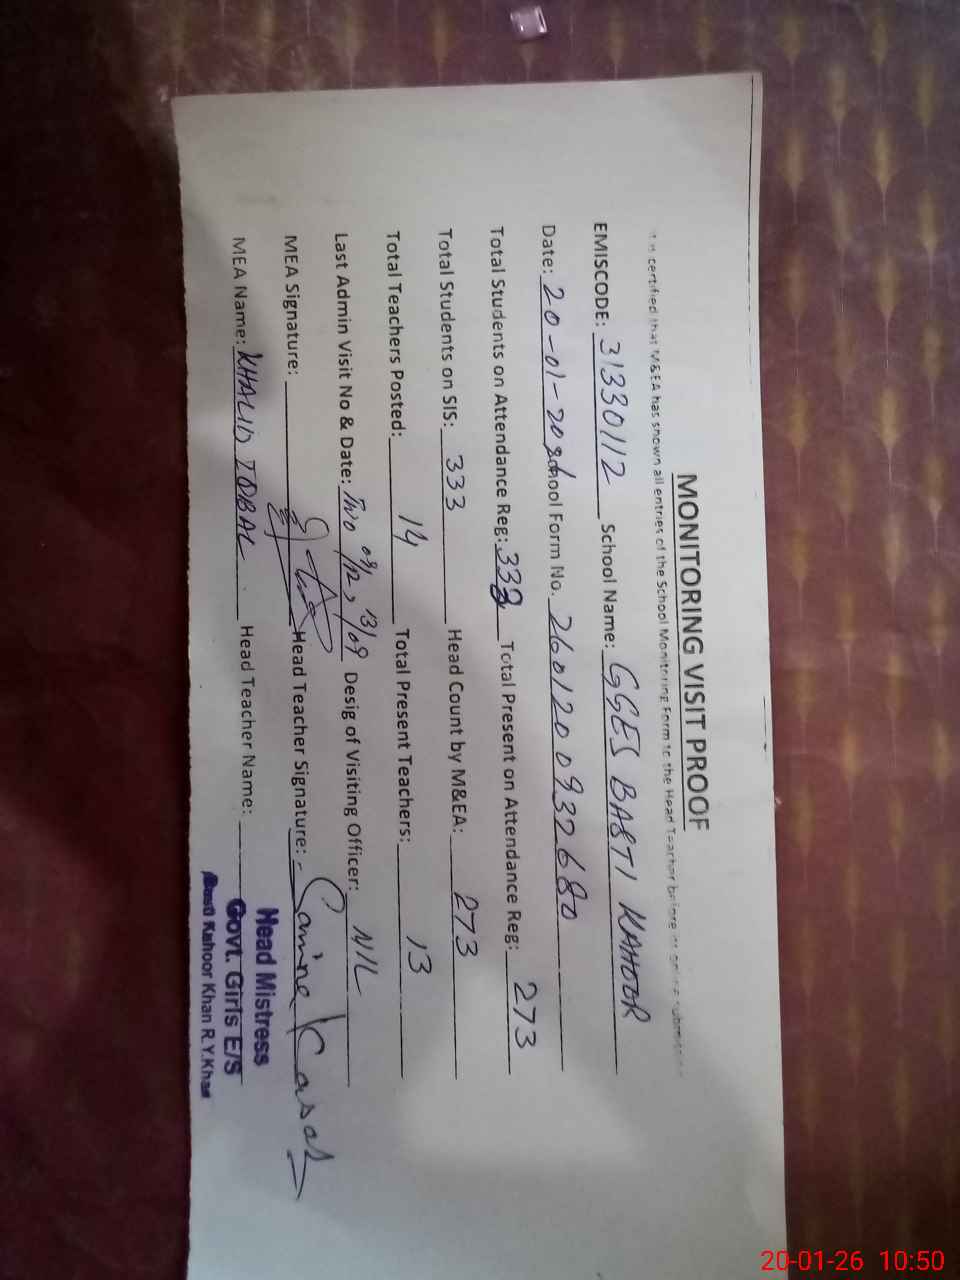 MONITORING VISIT PROOF
certified that M&EA has shown all entries of the School Monitoring Form to the Head Teacher before its online submission
EMISCODE: 31330112 School Name: GGES BASTI KAHOOR
Date: 20-01-2026 School Form No. 2601200932680
Total Students on Attendance Reg: 333 Total Present on Attendance Reg: 273
Total Students on SIS: 333 Head Count by M&EA: 273
Total Teachers Posted: 14 Total Present Teachers: 13
Last Admin Visit No & Date: Two 09/12, 13/09 Desig of Visiting Officer: NIL
MEA Signature: Head Teacher Signature:
MEA Name: KHALID IQBAL Head Teacher Name:
Head Mistress
Govt. Girls E/S
Basti Kahoor Khan R.Y.Khan
20-01-26 10:50